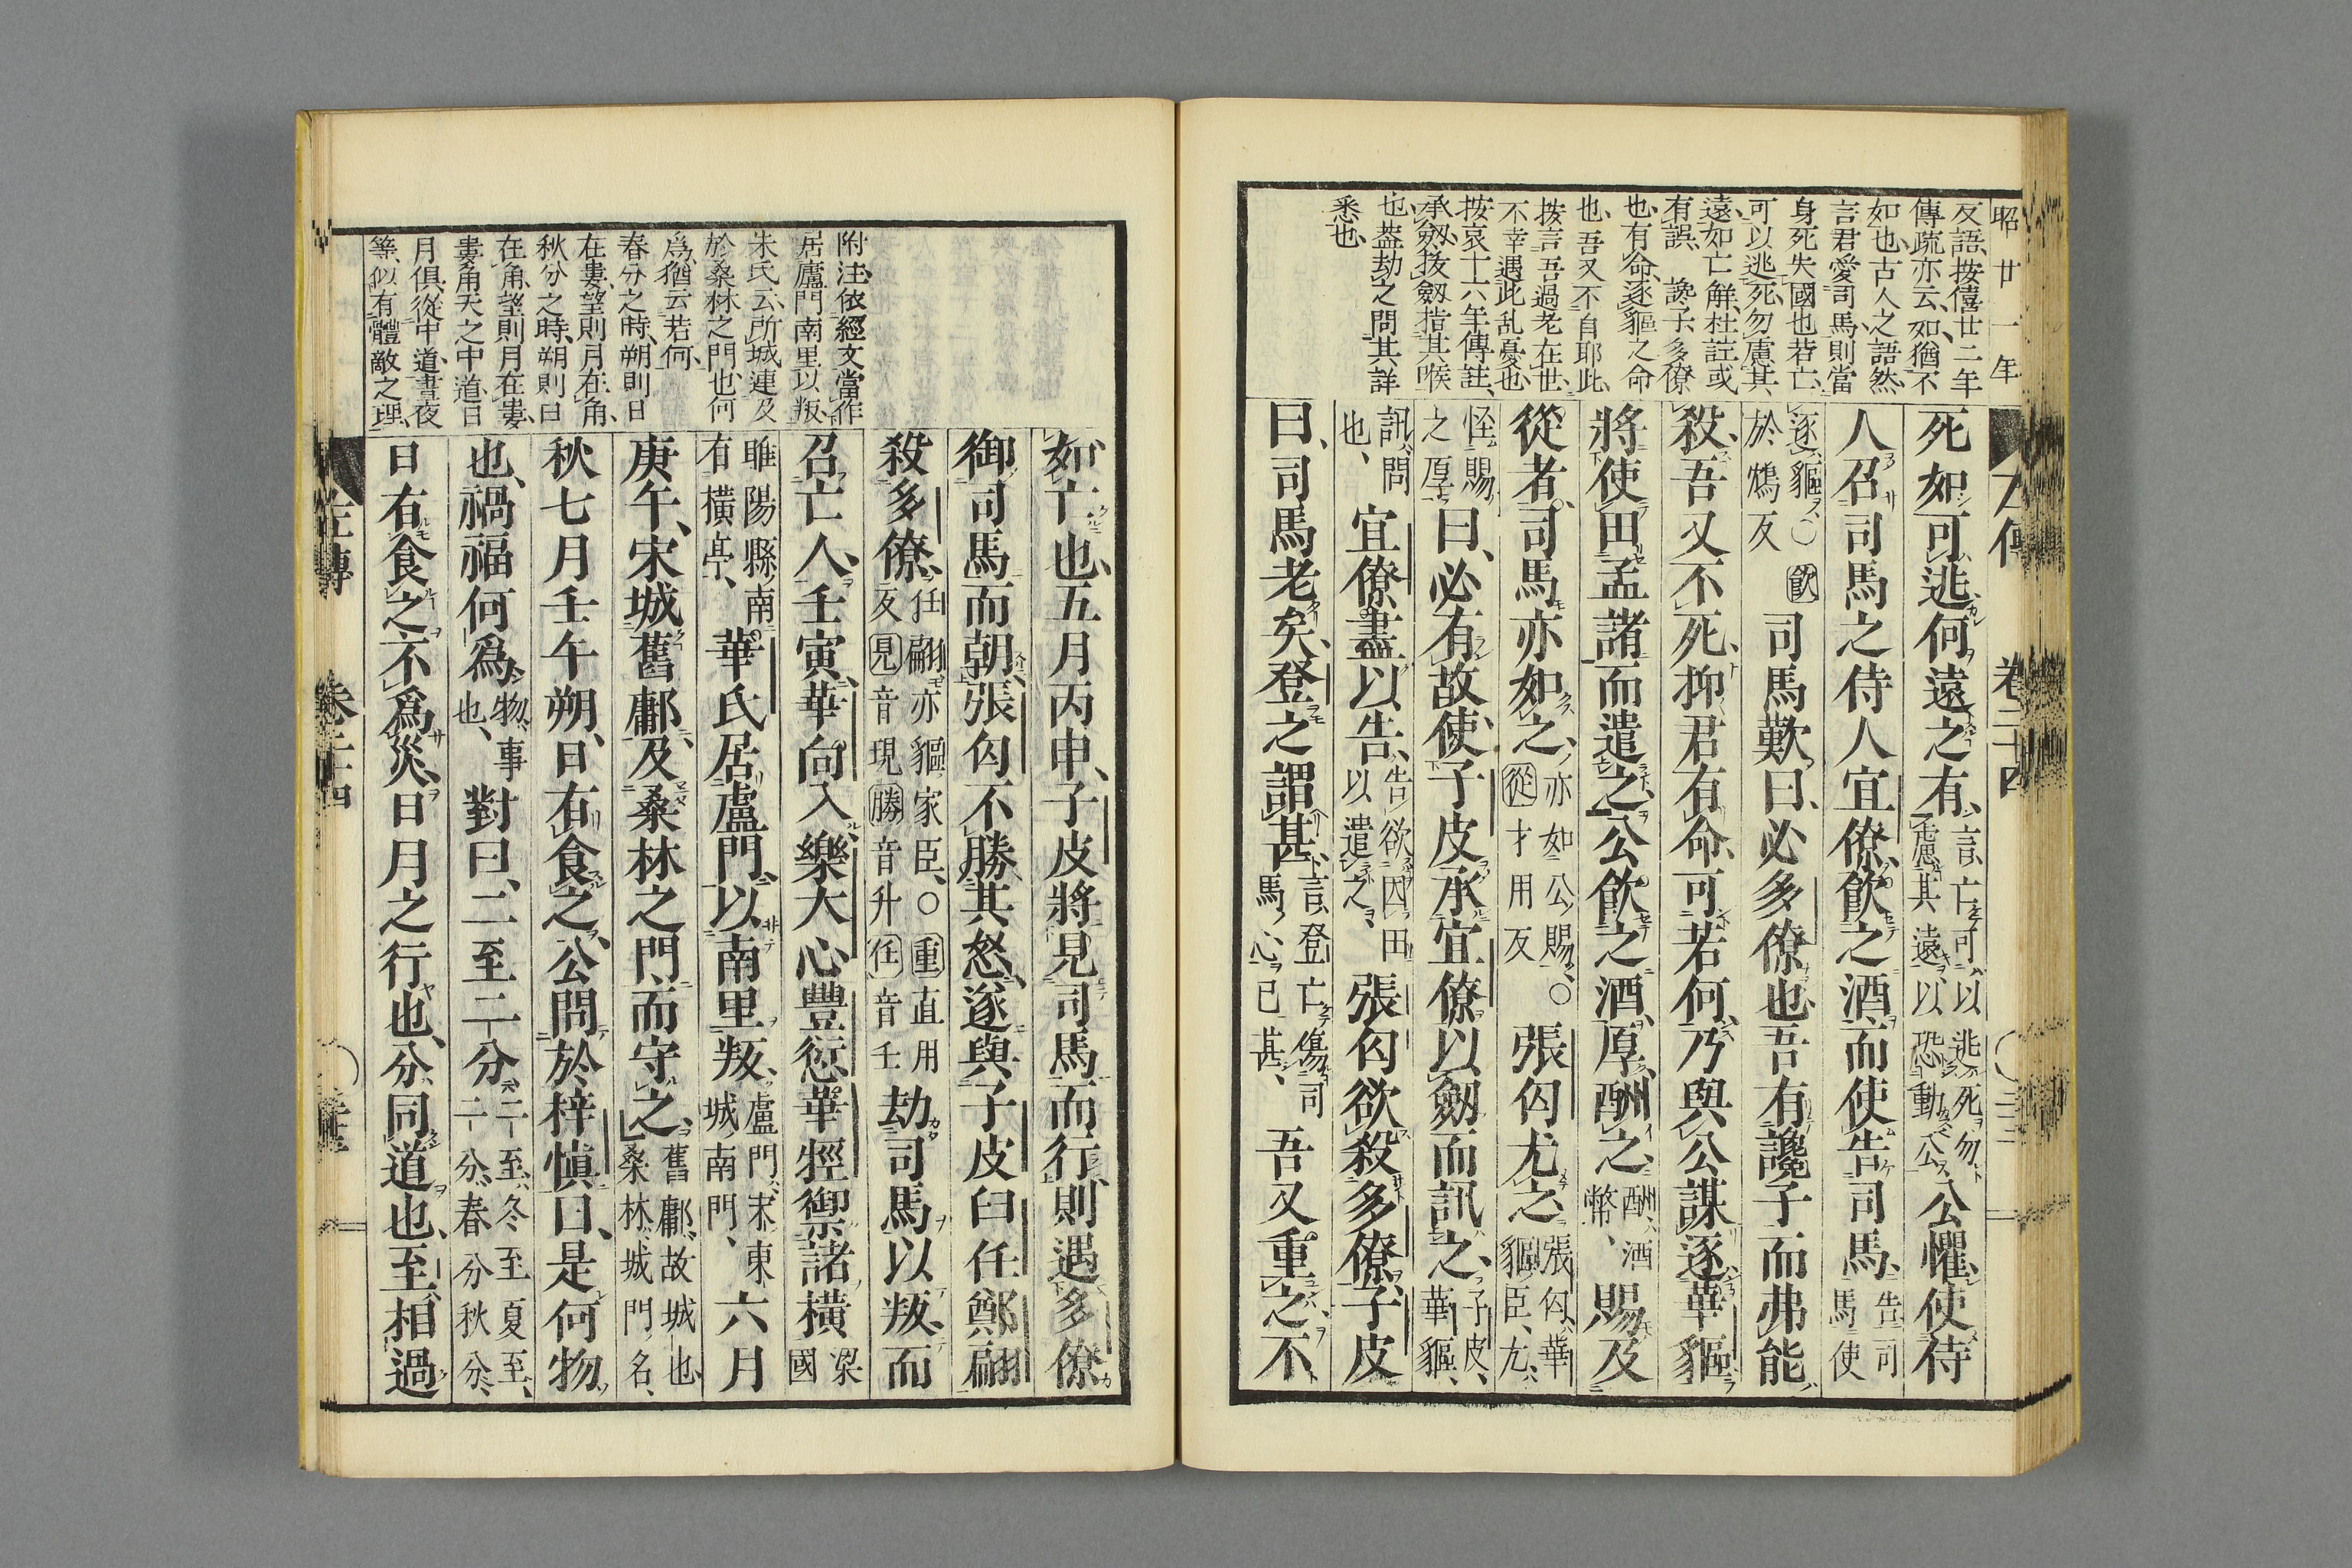 昭廿一年
反語、按僖廿二年
傳疏亦云、如猶不
如也、古人之語然、
言君愛司馬、則當
身死失國也、若亡
可以逃死、勿慮其
遠、如亡解、杜註或
有誤、讒子、多僚
也、有命、逐貙之命
也、吾又不自耶、此
按言吾過老在世、
不幸遇此乱憂也、
按哀十六年傳註、
承劔、拔劔指其喉
也、葢劫之問其詳
悉也、
死如可逃何遠之有、言亡可以逃死勿慮其遠以恐動公公懼使侍
人召司馬之侍人宜僚、飲之酒、而使告司馬、告司馬使
逐貙〇飲於鴆反司馬歎曰、必多僚也吾有讒子而弗能
殺、吾又不死、抑君有命、可若何、乃與公謀逐華貙
將使田孟諸而遣之、公飲之酒、厚酬之、酬酒幣、賜及
從者、司馬亦如之、亦如公賜、〇從才用反張匄尤之、張匄華貙臣、尤、
怪賜之厚曰、必有故、使子皮承宜僚以劔而訊之、子皮、華貙、
訊、問也、宜僚盡以告、告欲因田以遣之、張匄欲殺多僚、子皮
曰、司馬老矣、登之謂甚、言登亡傷司馬心已甚、吾又重之、不
如亡也、五月丙申、子皮將見司馬而行、則遇多僚
御司馬而朝、張匄不勝其怒、遂與子皮臼任鄭翩
殺多僚、任翩亦貙家臣、〇重直用反見音現勝音升任音壬劫司馬以叛、而
召亡人、壬寅、華向入、樂大心豐愆華牼禦諸橫梁國
睢陽縣南有橫亭、華氏居盧門、以南里叛、盧門、宋東城南門、六月
庚午、宋城舊鄘及桑林之門、而守之、舊鄘、故城也、桑林、城門名、
秋七月壬午朔、日有食之、公問於梓愼曰、是何物
也、禍福何爲、物、事也、對曰、二至二分、二至、冬至夏至、二分、春分秋分、
日有食之、不爲災、日月之行也、分同道也、至相過
附注、依經文、當作
居廬門南里以叛、
朱氏云、所城連及
於桑林之門也、何
爲、猶云若何、
春分之時、朔則日
在婁、望則月在角、
秋分之時、朔則日
在角、望則月在婁、
婁角天之中道、日
月俱從中道、晝夜
等、似有體敵之理、
左傳　卷二十四